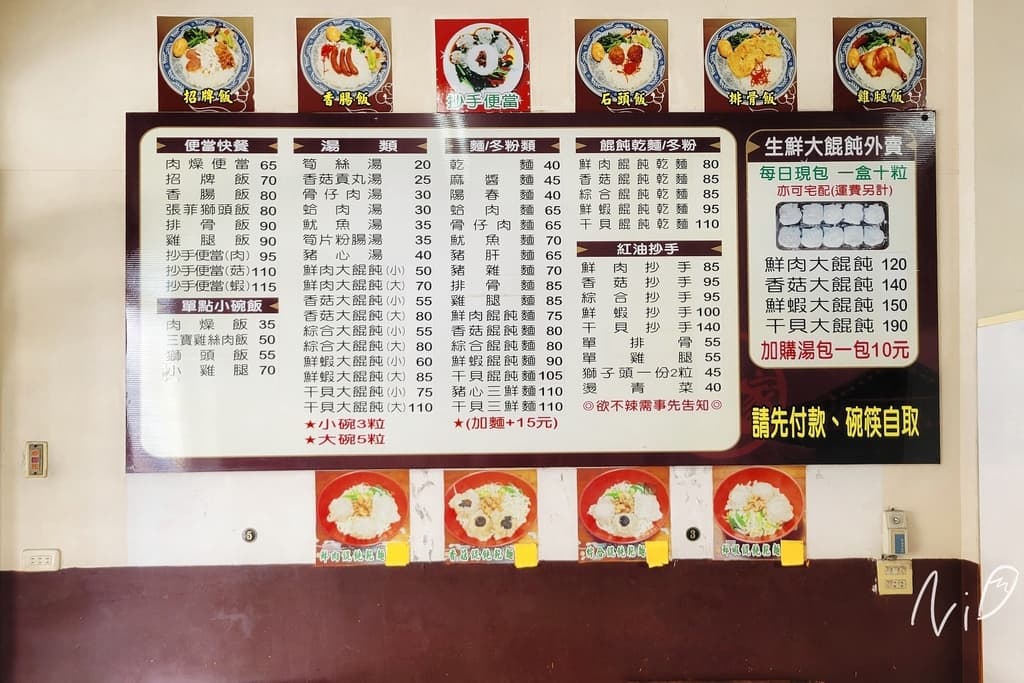 招牌飯
香腸飯
抄手便當
石頭飯
排骨飯
雞腿飯
便當快餐
肉燥便當 65
招牌飯 70
香腸飯 80
張菲獅頭飯 80
排骨飯 90
雞腿飯 90
抄手便當(肉) 95
抄手便當(菇) 110
抄手便當(蝦) 115
單點小碗飯
肉燥飯 35
三寶雞絲肉飯 50
獅頭飯 55
小雞腿 70
湯類
筍絲湯 20
香菇貢丸湯 25
骨仔肉湯 30
蛤肉湯 30
魷魚湯 35
筍片粉腸湯 35
豬心湯 40
鮮肉大餛飩(小) 50
鮮肉大餛飩(大) 70
香菇大餛飩(小) 55
香菇大餛飩(大) 80
綜合大餛飩(小) 55
綜合大餛飩(大) 80
鮮蝦大餛飩(小) 60
鮮蝦大餛飩(大) 85
干貝大餛飩(小) 75
干貝大餛飩(大) 110
★小碗3粒
★大碗5粒
麵/冬粉類
乾麵 40
麻醬麵 45
陽春麵 40
蛤肉麵 65
骨仔肉麵 65
魷魚麵 70
豬肝麵 65
豬雜麵 70
排骨麵 85
雞腿麵 85
鮮肉餛飩麵 75
香菇餛飩麵 80
綜合餛飩麵 80
鮮蝦餛飩麵 90
干貝餛飩麵 105
豬心三鮮麵 110
干貝三鮮麵 110
★(加麵+15元)
餛飩乾麵/冬粉
鮮肉餛飩乾麵 80
香菇餛飩乾麵 85
綜合餛飩乾麵 85
鮮蝦餛飩乾麵 95
干貝餛飩乾麵 110
紅油抄手
鮮肉抄手 85
香菇抄手 95
綜合抄手 95
鮮蝦抄手 100
干貝抄手 140
單排骨 55
單雞腿 55
獅子頭一份2粒 45
燙青菜 40
◎欲不辣需事先告知◎
生鮮大餛飩外賣
每日現包 一盒十粒
亦可宅配(運費另計)
鮮肉大餛飩 120
香菇大餛飩 140
鮮蝦大餛飩 150
干貝大餛飩 190
加購湯包一包10元
請先付款、碗筷自取
鮮肉餛飩乾麵
香菇餛飩乾麵
綜合餛飩乾麵
鮮蝦餛飩乾麵
5
3
NiD